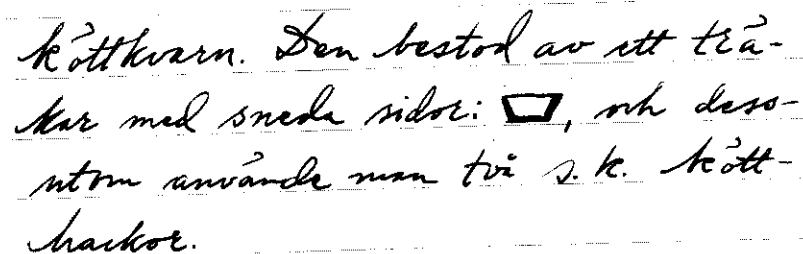 köttkvarn. Den bestod av ett trä-
kar med sneda sidor: , och dess-
utom använde man två s.k. kött-
hackor.